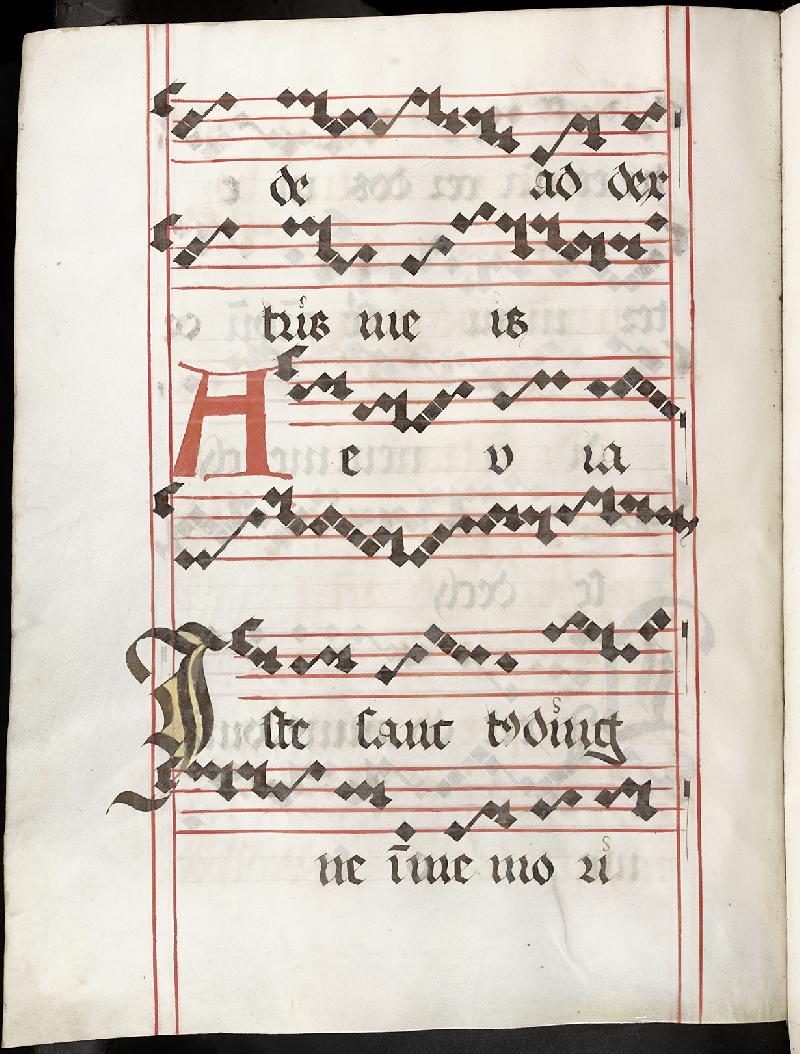 de ad dex
tris me is
A e v ia
Iste sanc t9 dig
ne ī me mo ri